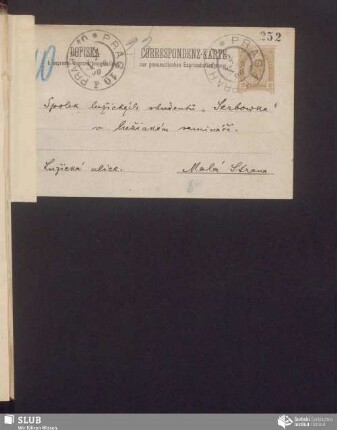 252
10
DOPISKA CORRESPONDENZ-KARTE
zur pneumatischen Expressbeförderung
PRAG 10 PRAHA 10
PRAG PRAHA
Spolek lužických studentů „Serbowka“
v lužickém semináři.
Lužická ulice. Malá Strana
SLUB
Wir führen Wissen.
Serbski institut
Sorbisches Institut